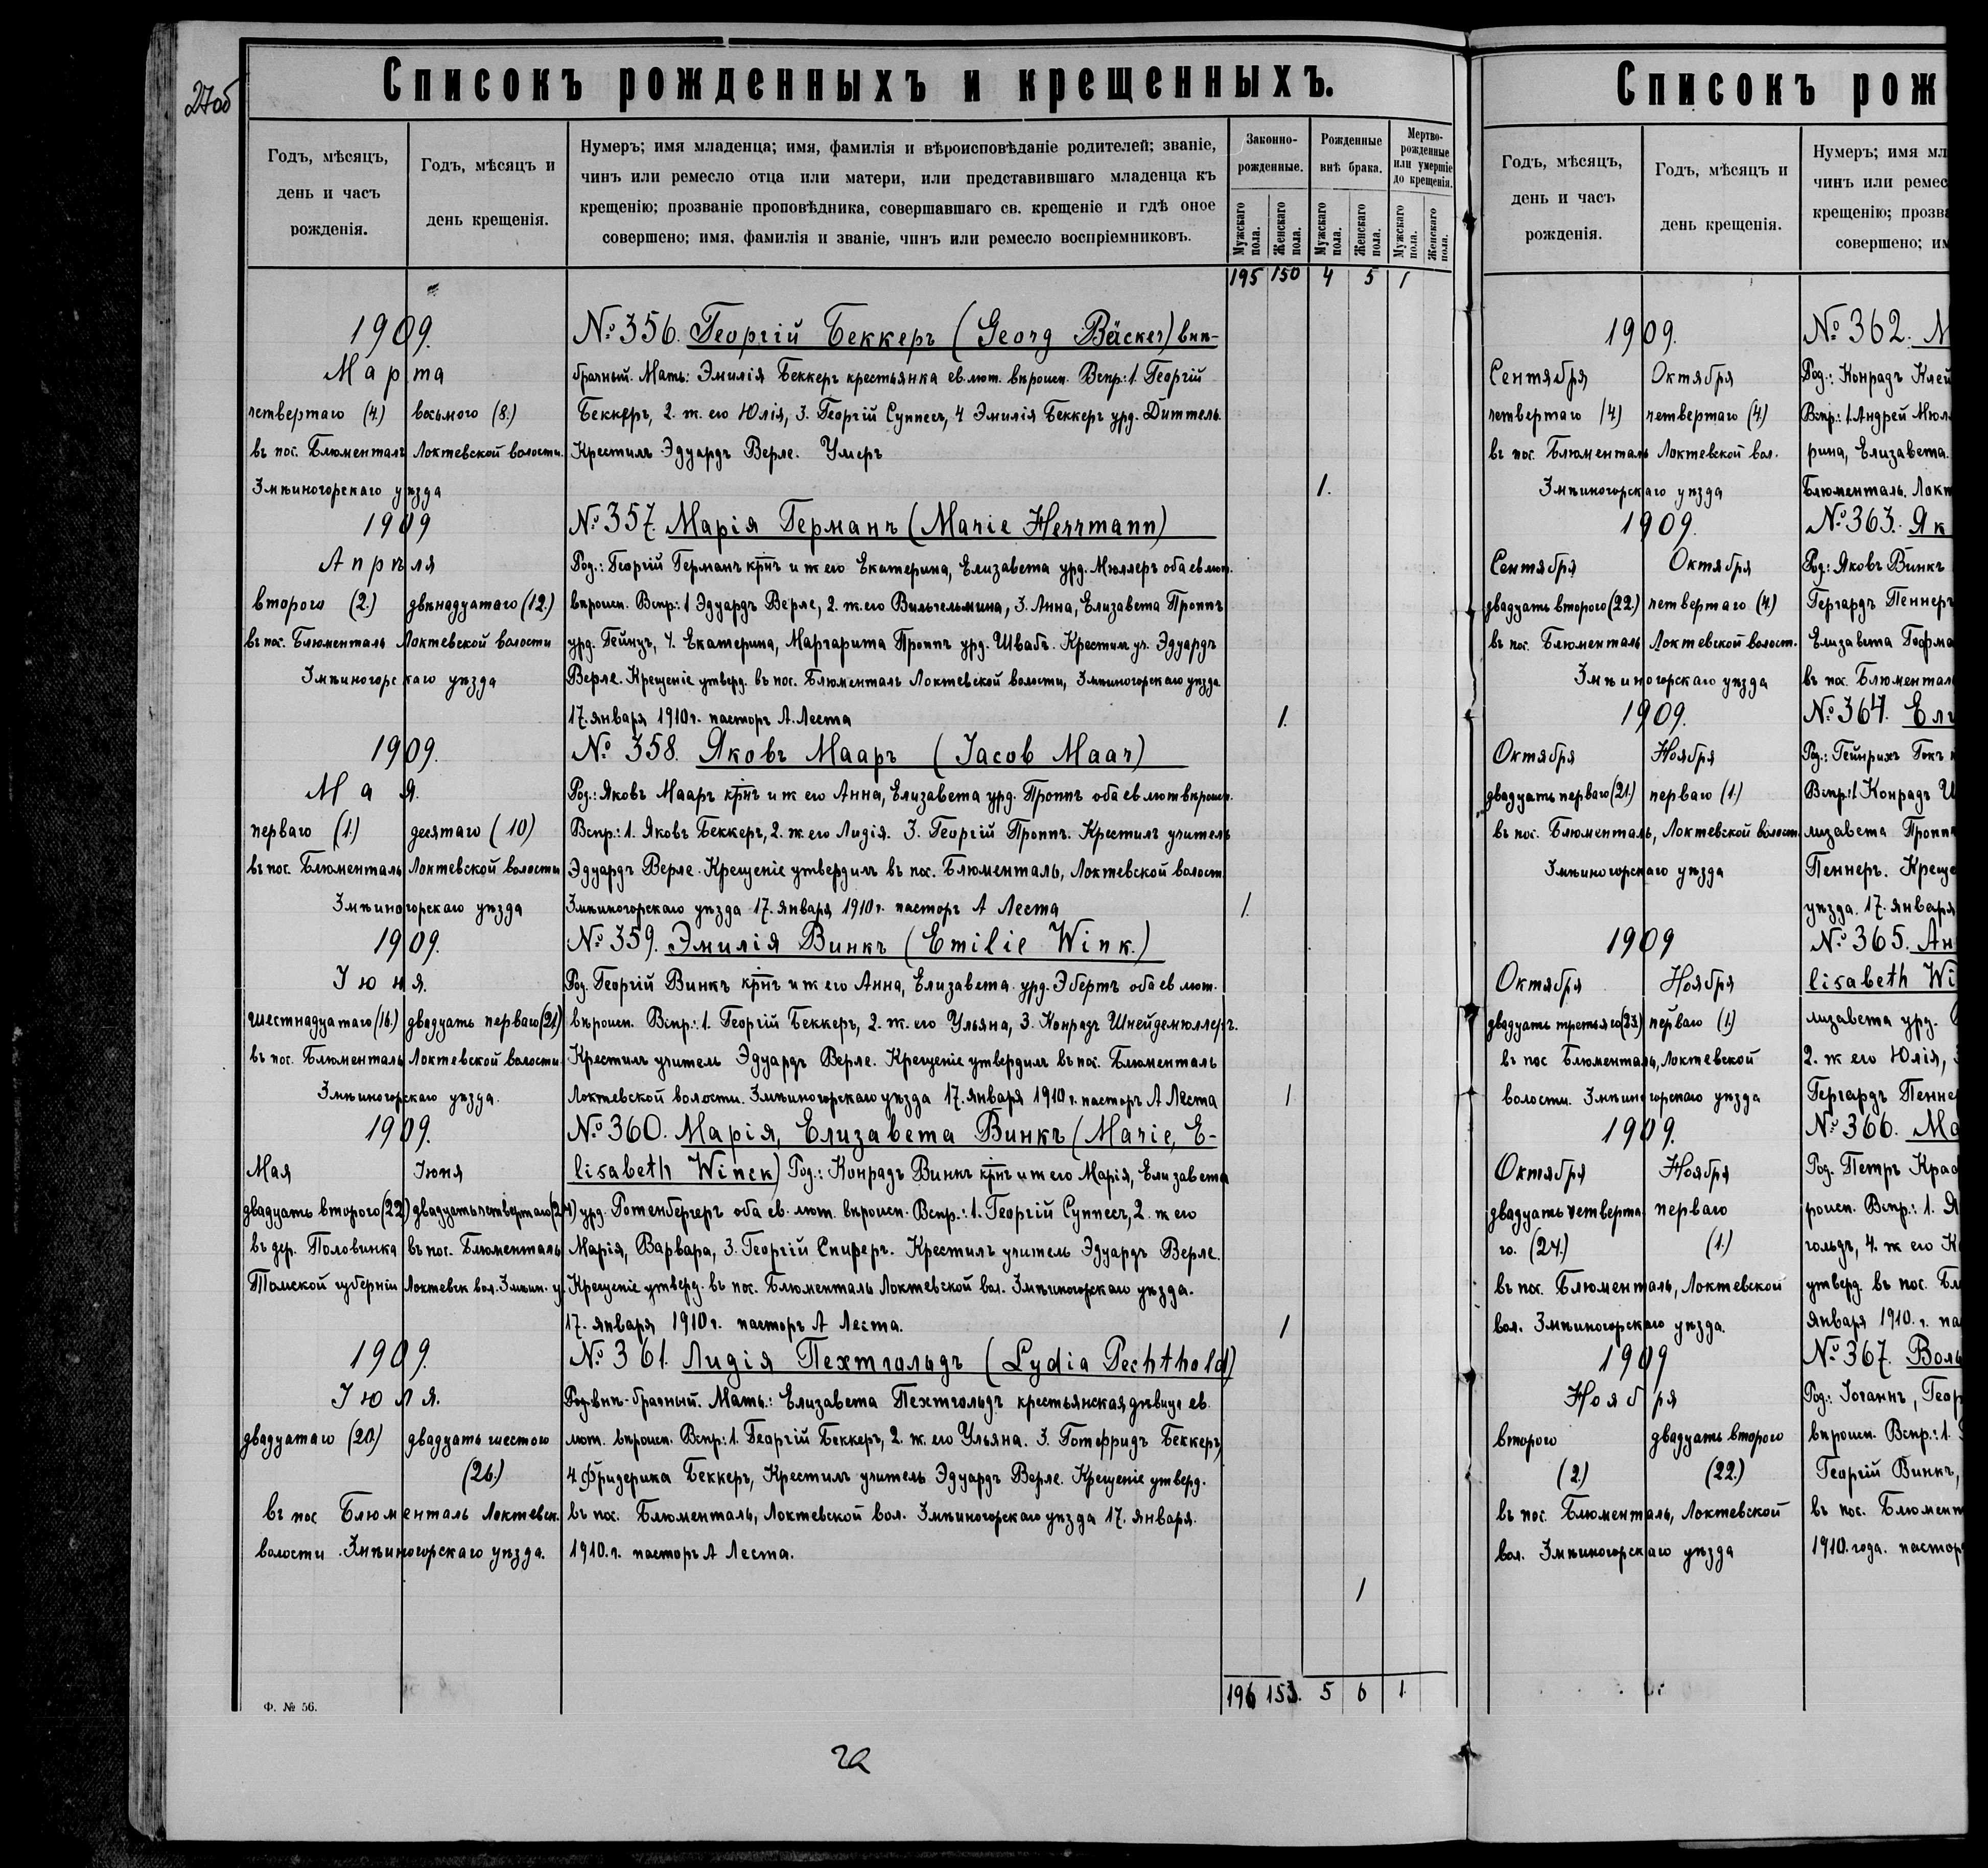 27об
Списокъ рожденныхъ и крещенныхъ.
Годъ, мѣсяцъ, день и часъ рожденія.
Годъ, мѣсяцъ и день крещенія.
Нумеръ; имя младенца; имя, фамилія и вѣроисповѣданіе родителей; званіе,
чинъ или ремесло отца или матери, или представившаго младенца къ
крещенію; прозваніе проповѣдника, совершавшаго св. крещеніе и гдѣ оное
совершено; имя, фамилія и званіе, чинъ или ремесло воспріемниковъ.
Законно-рожденные.
Рожденные внѣ брака.
Мертво-рожденные или умершіе до крещенія.
Мужскаго пола.
Женскаго пола.
Мужскаго пола.
Женскаго пола.
Мужскаго пола.
Женскаго пола.
195 150 4 5 1
1909.
Марта
четвертаго (4.) восьмого (8.)
въ пос. Блюменталъ Локтевской волости.
Змѣиногорскаго уѣзда
№ 356. Георгій Беккеръ (Georg Bäcker) внѣ-
брачный. Мать: Эмилія Беккеръ крестьянка ев. лют. вѣроисп. Вспр: 1. Георгій
Беккеръ, 2. ж. его Юлія, 3. Георгій Суппесъ, 4 Эмилія Беккеръ урд. Диттель.
Крестилъ Эдуардъ Верле. Умеръ
1.
1909
Апрѣля
второго (2.) двѣнадцатаго (12.)
въ пос. Блюменталь Локтевской волости
Змѣиногорскаго уѣзда
№ 357. Марія Германъ (Marie Herrmann)
Род.: Георгій Германъ крнъ и ж его Екатерина, Елизавета урд. Мюллеръ оба ев лют.
вѣроисп. Вспр: 1 Эдуардъ Верле, 2. ж. его Вильгельмина, 3. Анна, Елизавета Проппъ
урд. Гейнцъ, 4. Екатерина, Маргарита Проппъ урд. Швабъ. Крестил уч. Эдуардъ
Верле. Крещеніе утверд. въ пос. Блюменталь Локтевской волости, Змѣиногорскаго уѣзда
17. января 1910 г. пасторъ А. Леста
1.
1909.
Мая.
перваго (1.) десятаго (10)
въ пос. Блюменталь Локтевской волости
Змѣиногорскаго уѣзда
№ 358. Яковъ Мааръ (Jacob Maar)
Род.: Яковъ Мааръ крнъ и ж его Анна, Елизавета урд. Проппъ оба ев лют вѣроисп.
Вспр: 1. Яковъ Беккеръ, 2. ж его Лидія. 3. Георгій Проппъ. Крестилъ учитель
Эдуардъ Верле. Крещеніе утвердилъ въ пос. Блюменталь, Локтевской волост.
Змѣиногорскаго уѣзда 17. января 1910 г. пасторъ А Леста
1.
1909.
Іюня.
шестнадцатаго (16.) двадцать перваго (21.)
въ пос. Блюменталь Локтевской волости
Змѣиногорскаго уѣзда.
№ 359. Эмилія Винкъ (Emilie Wink.)
Род. Георгій Винкъ крнъ и ж его Анна, Елизавета урд. Эбертъ оба ев лют.
вѣроисп. Вспр: 1. Георгій Беккеръ, 2. ж. его Ульяна, 3. Конрадъ Шнейдемюллеръ.
Крестилъ учитель Эдуардъ Верле. Крещеніе утвердилъ въ пос. Блюменталь
Локтевской волости. Змѣиногорскаго уѣзда 17. января 1910 г. пасторъ А Леста
1
1909.
Мая Іюня
двадцать второго (22) двадцать четвертаго (24)
въ дер. Половинка въ пос. Блюменталь
Томской губерніи Локтевск вол. Змѣин. у.
№ 360. Марія, Елизавета Винкъ (Marie, E-
lisabeth Winck) Род.: Конрадъ Винкъ крнъ и ж его Марія, Елизавета
урд. Ротенбергеръ оба ев. лют. вѣроисп. Вспр.: 1. Георгій Суппесъ, 2. ж его
Марія, Варвара, 3. Георгій Сниферъ. Крестилъ учитель Эдуардъ Верле.
Крещеніе утверд. въ пос. Блюменталь Локтевской вол. Змѣиногорскаго уѣзда.
17. января 1910 г. пасторъ А Леста.
1
1909.
Іюля.
двадцатаго (20.) двадцать шестого
(26.)
въ пос Блюменталь Локтевск.
волости Змѣиногорскаго уѣзда.
№ 361. Лидія Пехтгольдъ (Lydia Pechthold)
Род внѣ-брачный. Мать.: Елизавета Пехтгольдъ крестьянская дѣвица ев.
лют. вѣроисп. Вспр: 1. Георгій Беккеръ, 2. ж. его Ульяна. 3. Готфридъ Беккеръ,
4 Фридерика Беккеръ, Крестилъ учитель Эдуардъ Верле. Крещеніе утверд.
въ пос. Блюменталь, Локтевской вол. Змѣиногорскаго уѣзда 17. января.
1910. г. пасторъ А Леста.
1
196 153. 5 6 1.
Ф. № 56.
Списокъ рож
Годъ, мѣсяцъ, день и часъ рожденія.
Годъ, мѣсяцъ и день крещенія.
Нумеръ; имя мл
чинъ или ремес
крещенію; прозва
совершено; им
1909.
Сентября Октября
четвертаго (4) четвертаго (4.)
въ пос. Блюменталь Локтевской вол.
Змѣиногорскаго уѣзда
№ 362. М
Род.: Конрадъ Клей
Вспр: 1. Андрей Мюл
рина, Елизавета.
Блюменталь. Локт
1909.
Сентября Октября
двадцать второго (22.) четвертаго (4.)
въ пос. Блюменталь Локтевской волост.
Змѣиногорскаго уѣзда
№ 363. Як
Род: Яковъ Винкъ
Гергардъ Пеннеръ
Елизавета Гофма
въ пос. Блюментал
1909.
Октября Ноября
двадцать перваго (21.) перваго (1.)
въ пос. Блюменталь, Локтевской волост.
Змѣиногорскаго уѣзда
№ 364. Ели
Род.: Гейнрихъ Гокъ
Вспр: 1 Конрадъ Ш
лизавета Пропп
Пеннеръ. Креще
уѣзда. 17. января
1909
Октября Ноября
двадцать третьяго (23.) перваго (1.)
въ пос Блюменталь, Локтевской
волости. Змѣиногорскаго уѣзда
№ 365. Ан
lisabeth Wi
лизавета урд.
2. ж его Юлія,
Гергардъ Пенне
1909.
Октября Ноября
двадцать четверта перваго
го. (24.) (1.)
въ пос. Блюменталь, Локтевской
вол. Змѣиногорскаго уѣзда.
№ 366. Ма
Род. Петръ Кра
роисп. Вспр.: 1. Я
гольдъ, 4. ж его К
утверд. въ пос. Бл
января 1910. г. па
1909
Ноября
второго двадцать второго
(2.) (22.)
въ пос. Блюменталь, Локтевской
вол. Змѣиногорскаго уѣзда
№ 367. Воль
Род.: Іоганнъ, Геор
вѣроисп. Вспр.: 1.
Георгій Винкъ,
въ пос. Блюмент
1910. года. пастор